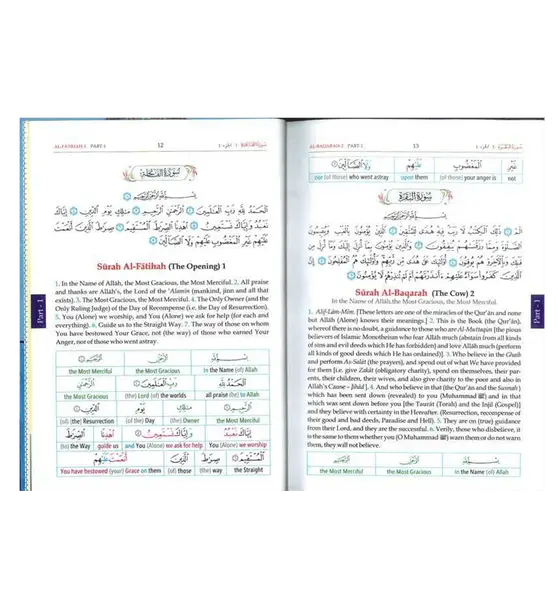 AL-FATIHAH-1 PART-1
12
سورة الفاتحة ١ الجزء ١
سورة الفاتحة
الحمد لله رب العالمين الرحمن الرحيم مالك يوم الدين إياك
نعبد وإياك نستعين اهدنا الصراط المستقيم صراط الذين أنعمت
عليهم غير المغضوب عليهم ولا الضالين
Sûrah Al-Fâtihah (The Opening) 1
1. In the Name of Allâh, the Most Gracious, the Most Merciful. 2. All praise
and thanks are Allâh's, the Lord of the 'Alamîn (mankind, jinn and all that
exists). 3. The Most Gracious, the Most Merciful. 4. The Only Owner (and the
Only Ruling Judge) of the Day of Recompense (i.e. the Day of Resurrection).
5. You (Alone) we worship, and You (Alone) we ask for help (for each and
everything). 6. Guide us to the Straight Way. 7. The way of those on whom
You have bestowed Your Grace, not (the way) of those who earned Your
Anger, nor of those who went astray.
the Most Merciful the Most Gracious In the Name (of) Allah
الرحمن الحمد لله رب العالمين
the Most Gracious (the) Lord (of) the worlds all praise (be) to Allah
الدين يوم مالك الرحيم
(of) (the) Resurrection (of) the Day (the) Owner the Most Merciful
الصراط اهدنا وإياك نستعين إياك نعبد
(to) the Way guide us and You (Alone) we ask for help You (Alone) we worship
أنعمت عليهم الذين صراط المستقيم
You have bestowed (your) Grace on them (of) those (the) way the Straight
Part - 1
AL-BAQARAH-2 PART-1
13
سورة البقرة ٢ الجزء ١
ولا الضالين عليهم المغضوب غير
nor (of those) who went astray upon them (of those) your anger is not
سورة البقرة
الم ذلك الكتاب لا ريب فيه هدى للمتقين الذين يؤمنون بالغيب ويقيمون
الصلاة ومما رزقناهم ينفقون والذين يؤمنون بما أنزل إليك وما أنزل من
قبلك وبالآخرة هم يوقنون أولئك على هدى من ربهم وأولئك هم المفلحون إن
الذين كفروا سواء عليهم ءأنذرتهم أم لم تنذرهم لا يؤمنون
Sûrah Al-Baqarah (The Cow) 2
In the Name of Allâh, the Most Gracious, the Most Merciful.
1. Alif-Lâm-Mîm. [These letters are one of the miracles of the Qur'ân and none
but Allâh (Alone) knows their meanings.] 2. This is the Book (the Qur'ân),
whereof there is no doubt, a guidance to those who are Al-Muttaqûn [the pious
believers of Islamic Monotheism who fear Allâh much (abstain from all kinds
of sins and evil deeds which He has forbidden) and love Allâh much (perform
all kinds of good deeds which He has ordained)]. 3. Who believe in the Ghaib
and perform As-Salât (the prayers), and spend out of what We have provided
for them [i.e. give Zakât (obligatory charity), spend on themselves, their par-
ents, their children, their wives, and also give charity to the poor and also in
Allâh's Cause - Jihâd]. 4. And who believe in that (the Qur'ân and the Sunnah)
which has been sent down (revealed) to you (Muhammad ﷺ) and in that
which was sent down before you [the Taurât (Torah) and the Injîl (Gospel)]
and they believe with certainty in the Hereafter. (Resurrection, recompense of
their good and bad deeds, Paradise and Hell). 5. They are on (true) guidance
from their Lord, and they are the successful. 6. Verily, those who disbelieve, it
is the same to them whether you (O Muhammad ﷺ) warn them or do not warn
them, they will not believe.
the Most Merciful the Most Gracious in the Name (of) Allah
Part - 1